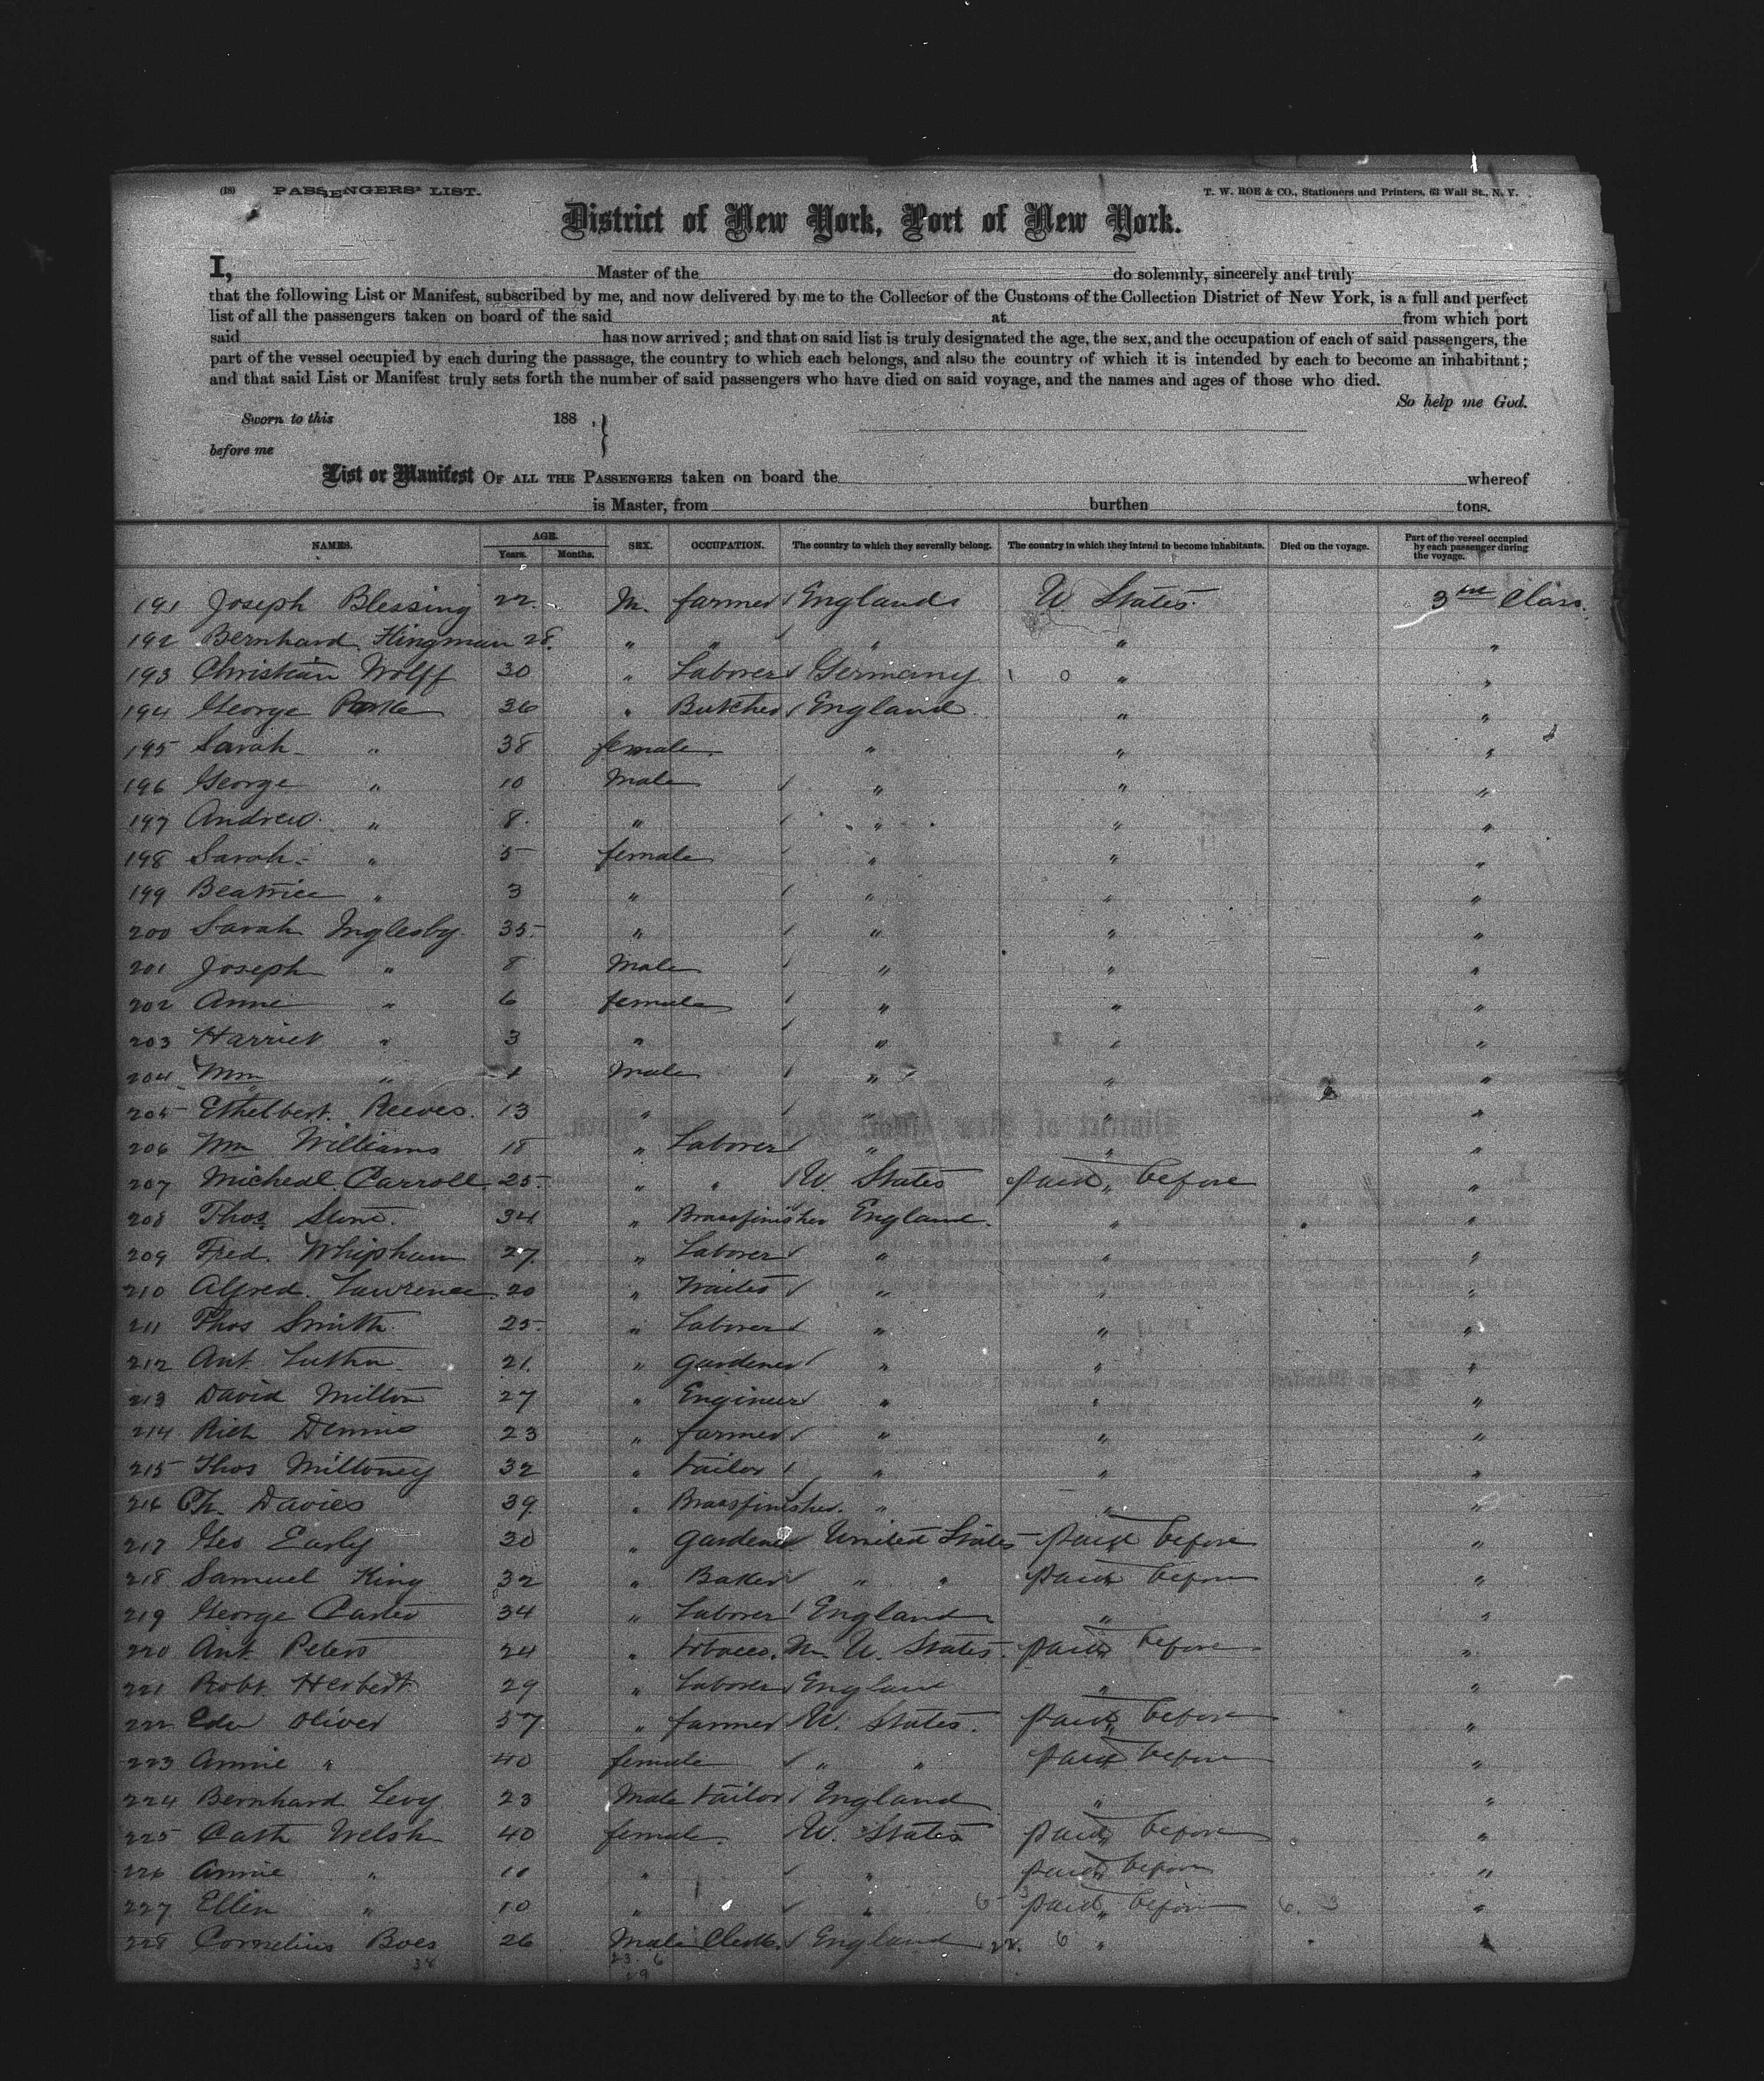 (18) PASSENGERS' LIST. T. W. ROE & CO., Stationers and Printers, 63 Wall St., N. Y.
District of New York, Port of New York.
I, Master of the do solemnly, sincerely and truly
that the following List or Manifest, subscribed by me, and now delivered by me to the Collector of the Customs of the Collection District of New York, is a full and perfect
list of all the passengers taken on board of the said at from which port
said has now arrived; and that on said list is truly designated the age, the sex, and the occupation of each of said passengers, the
part of the vessel occupied by each during the passage, the country to which each belongs, and also the country of which it is intended by each to become an inhabitant;
and that said List or Manifest truly sets forth the number of said passengers who have died on said voyage, and the names and ages of those who died.
So help me God.
Sworn to this 188 .
before me
List or Manifest OF ALL THE PASSENGERS taken on board the whereof
is Master, from burthen tons.
NAMES. AGE. Years. Months. SEX. OCCUPATION. The country to which they severally belong. The country in which they intend to become inhabitants. Died on the voyage. Part of the vessel occupied by each passenger during the voyage.
191 Joseph Blessing 22 M. farmer England U States 3 Class
192 Bernhard Klingman 28 " " " " "
193 Christian Wolff 30 " Laborer Germany " "
194 George 36 " Butcher England " "
195 Sarah " 38 female " " "
196 George " 10 Male " " "
197 Andrew " 8 " " " "
198 Sarah " 5 female " " "
199 Beatrice " 3 " " " "
200 Sarah Inglesby 35 " " " "
201 Joseph " 8 Male " " "
202 Anne " 6 female " " "
203 Harriet " 3 " " " "
204 Wm " 1 Male " " "
205 Ethelbert Reeves 13 " " " "
206 Wm Williams 18 " Laborer " " "
207 Micheal Carroll 25 " " U. States paid " before "
208 Thos Stone 34 " Brassfinisher England " "
209 Fred. Whipham 27 " Laborer " " "
210 Alfred Lawrence 20 " Waiter " " "
211 Thos Smith 25 " Laborer " " "
212 Ant 21 " gardener " " "
213 David Milton 27 " Engineer " " "
214 Rich Dennis 23 " farmer " " "
215 Thos Miltoney 32 " tailor " " "
216 Th. Davies 39 " Brassfinisher " " "
217 Geo Early 30 " gardener United States paid before "
218 Samuel King 32 " Baker " " paid before "
219 George Carter 34 " Laborer England " "
220 Ant Peters 24 " tobacco. M. U. States paid before "
221 Robt Herbert 29 " Laborer England " "
222 Edw Oliver 57 " farmer U. States. paid before "
223 Annie " 40 female " " paid before "
224 Bernhard Levy 23 Male tailor England " "
225 Cath Welsh 40 female U. States paid before "
226 Annie " 11 " " paid before "
227 Ellen " 10 " " paid before 6. 3 "
228 Cornelius Boes 26 Male Clerk England 22. 6 " "
38 23 6